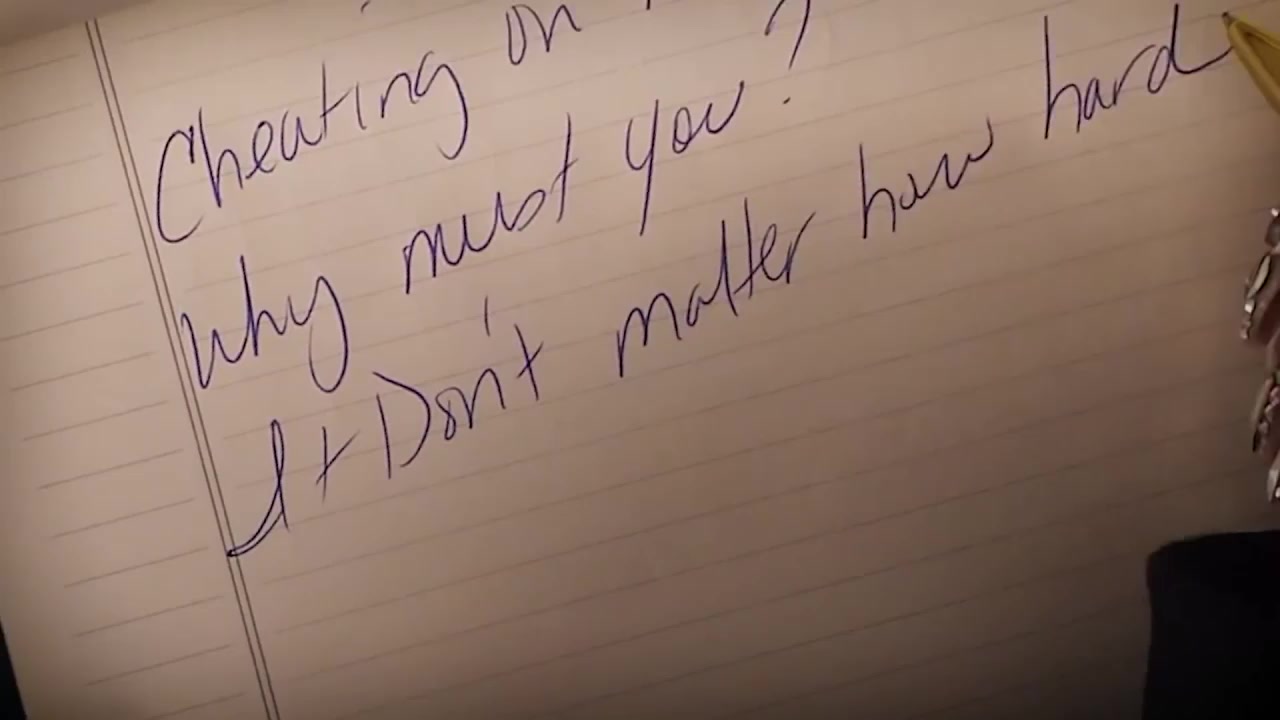 Cheating on
Why must you?
It Don't matter how hard